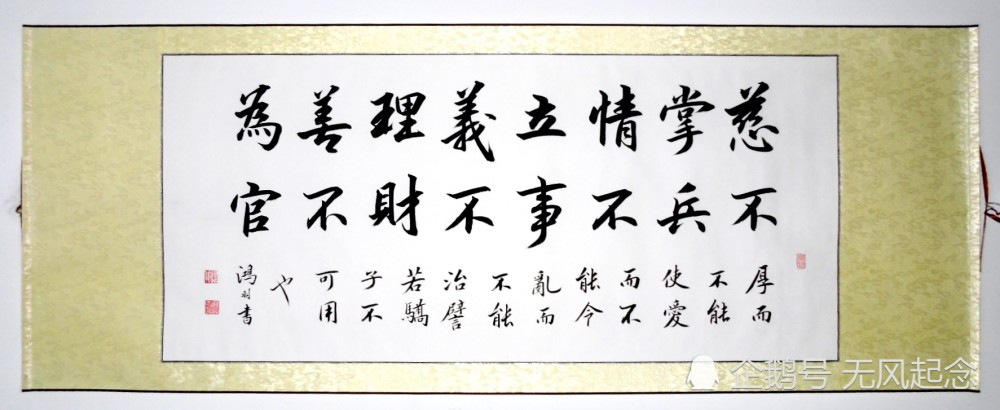 慈不
掌兵
情不
立事
義不
理財
善不
為官
厚而
不能
使愛
而不
能今
亂而
不能
治譬
若驕
子不
可用
也
鴻羽書
企鹅号 无风起念